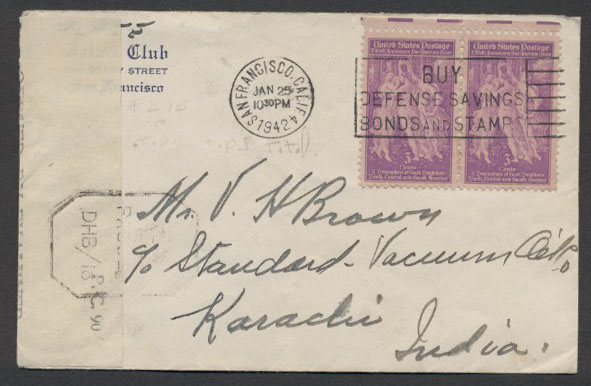 Club
STREET
Francisco
SAN FRANCISCO, CALIF.
JAN 25
1030PM
1942
4
BUY
DEFENSE SAVINGS
BONDS AND STAMPS
United States Postage
3
Cents
3
Cents
United States Postage
Mr. V. H Brown
c/o Standard-Vacuum Oil Co
Karachi
India.
DHB/